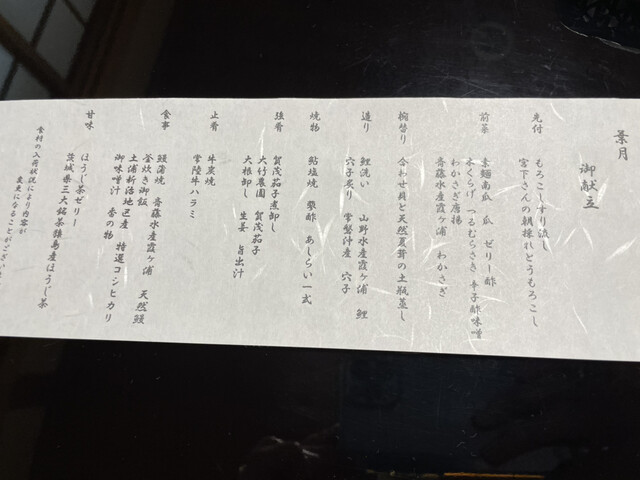 葉月
御献立
先付
もろこしすり流し
宮下さんの朝採れとうもろこし
前菜
素麺南瓜 瓜 ゼリー酢
木くらげ つるむらさき 辛子酢味噌
わかさぎ唐揚
齋藤水産霞ヶ浦 わかさぎ
椀替り
合わせ貝と天然夏茸の土瓶蒸し
造り
鯉洗い 山野水産霞ヶ浦 鯉
穴子炙り 常磐沖産 穴子
焼物
鮎塩焼 蓼酢 あしらい一式
強肴
賀茂茄子煮卸し
大竹農園 賀茂茄子
大根卸し 生姜 旨出汁
止肴
牛炭焼
常陸牛ハラミ
食事
鰻蒲焼 齋藤水産霞ヶ浦 天然鰻
釜炊き御飯
土浦新治地区産 特選コシヒカリ
御味噌汁 香の物
甘味
ほうじ茶ゼリー
茨城県三大銘茶猿島産ほうじ茶
食材の入荷状況により内容が
変更になることがござい